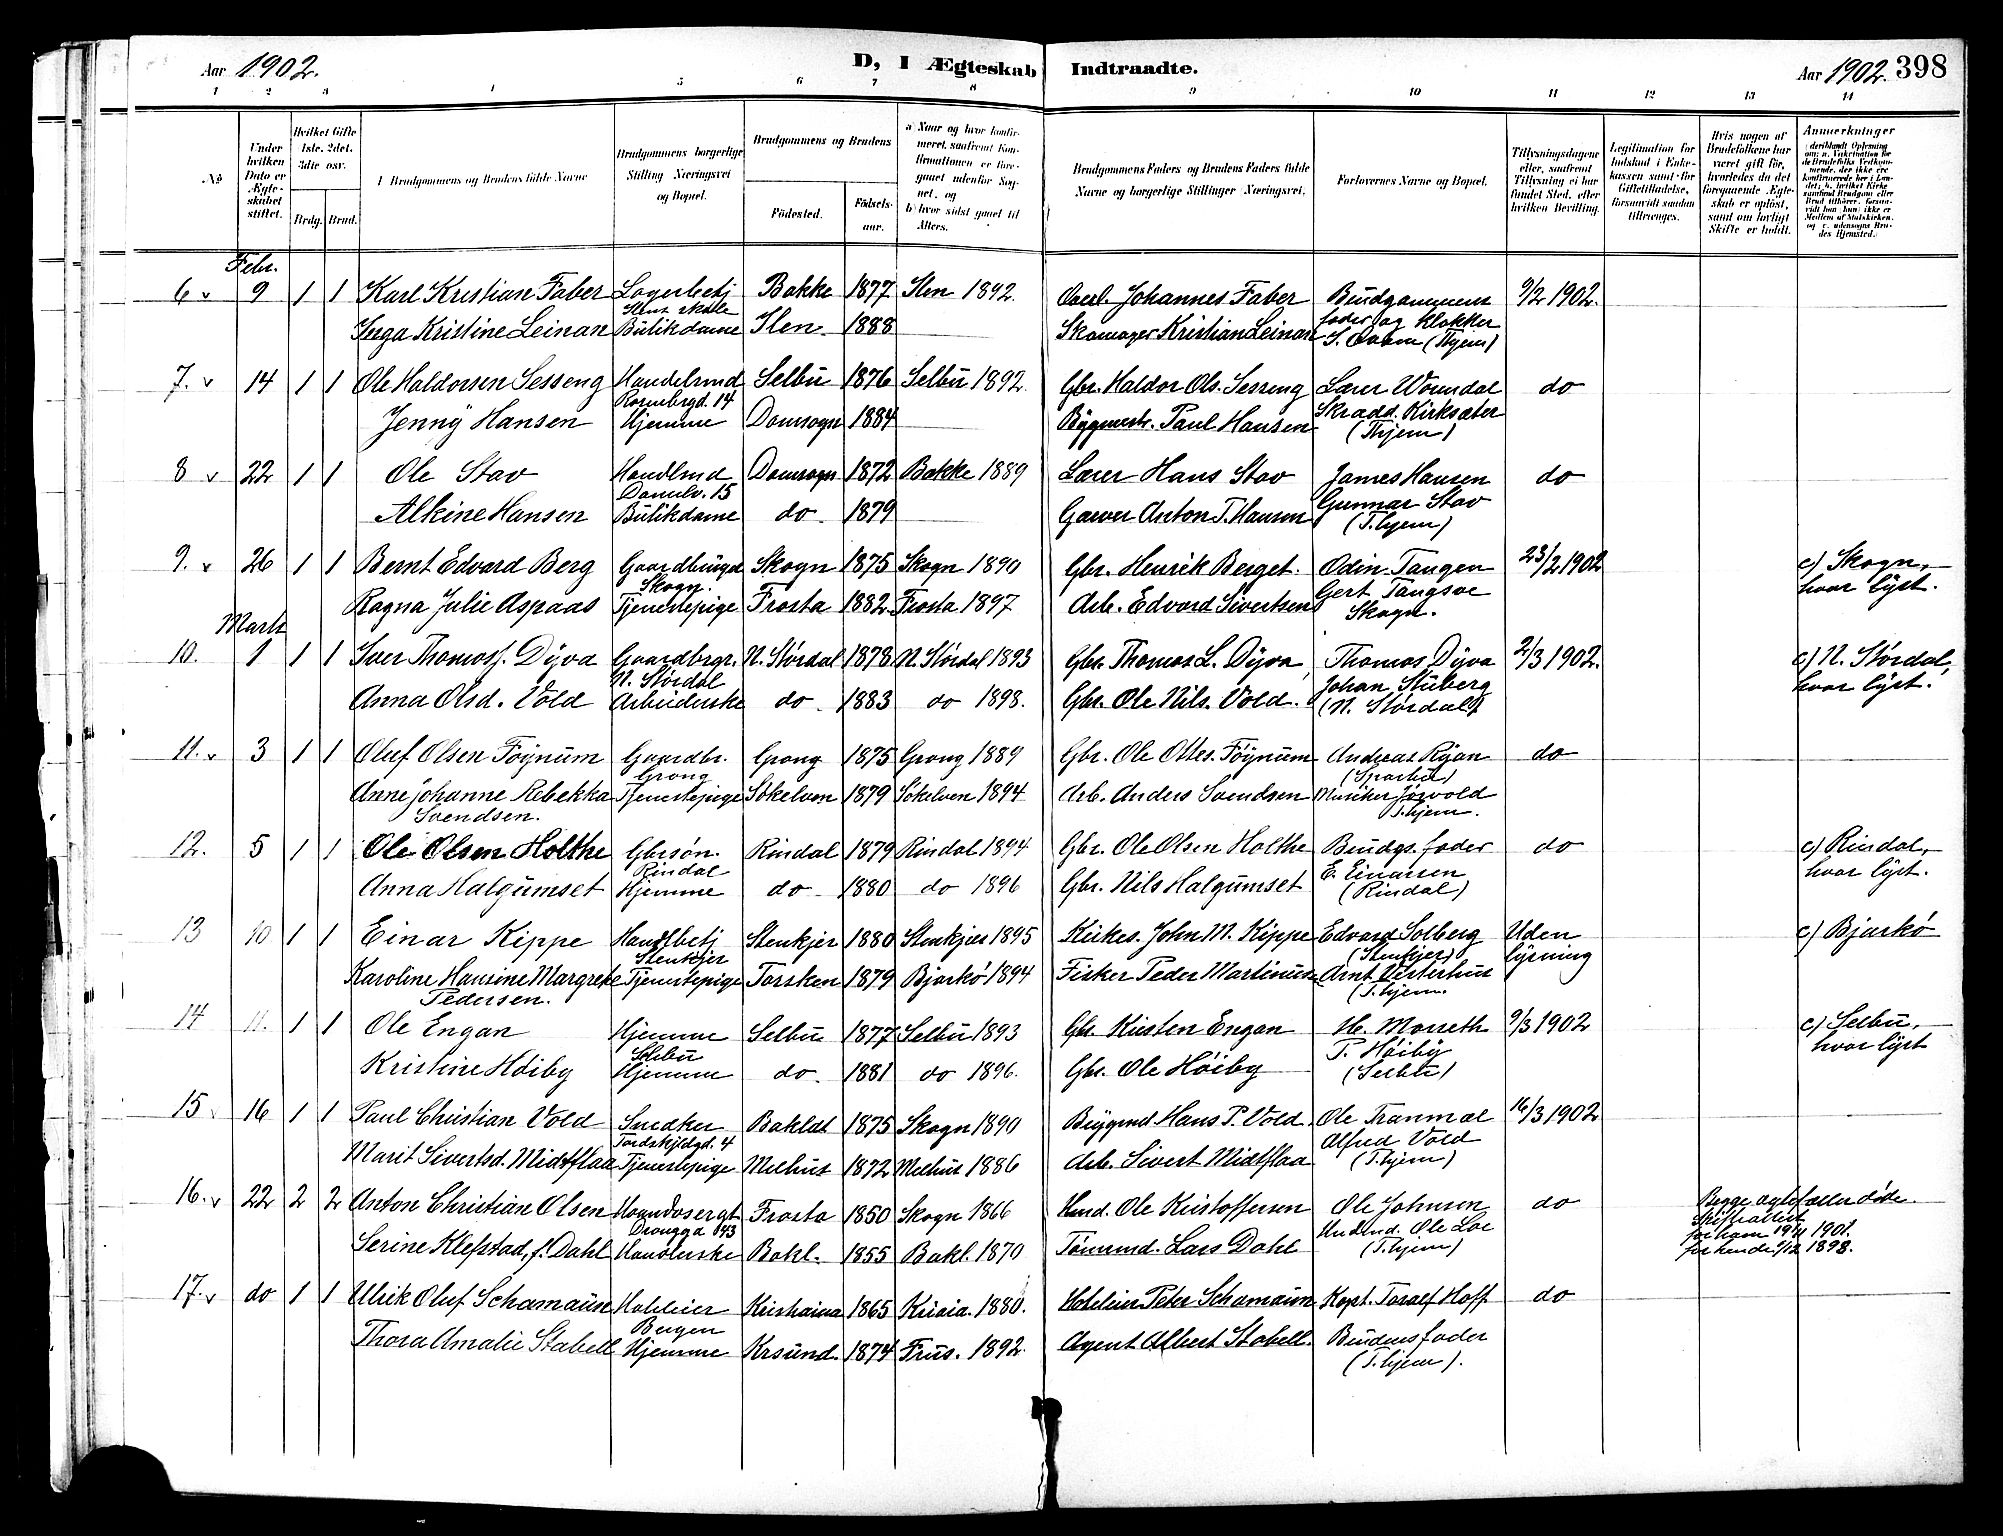 Aar 1902.
D, I Ægteskab Indtraadte.
Aar 1902. 398
1 2 3 4 5 6 7 8 9 10 11 12 13 14
No
Under hvilken Dato er Ægteskabet stiftet.
Hvilket Gifte 1ste. 2det. 3die osv.
Brdg. Brud.
Brudgommens og Brudens fulde Navne
Brudgommens borgerlige Stilling Næringsvei og Bopæl.
Brudgommens og Brudens
Fødested. Fødselsaar.
a) Naar og hvor konfirmeret, saafremt Konfirmationen er foregaaet udenfor Sognet, og
b) hvor sidst gaaet til Alters.
Brudgommens Faders og Brudens Faders fulde Navne og borgerlige Stillinger (Næringsvei.
Forlovernes Navne og Bopæl.
Tillysningsdagene eller, saafremt Tillysning ei har fundet Sted, efter hvilken Bevilling.
Hvis nogen af Brudefolkene har været gift før, hvorledes da det foregaaende Ægteskab er opløst, samt om lovligt Skifte er holdt.
Anmærkninger
Febr.
6 9 1 1 Karl Kristian Faber Lagerbetj Bakke 1877 Ilen 1892. Johannes Faber Brudgommens 9/2 1902.
Inga Kristine Leinan Butikdame Ilen 1888 Skomager Kristian Leinan fader og Klokker (Thjem)
7. 14 1 1 Ole Haldorsen Sesseng Handelsmd Selbu 1876 Selbu 1892. Gbr. Haldor Ols. Sesseng Lærer do
Rosenbergd. 14
Jenny Hansen Hjemme Domsogn 1884 Bygmestr. Paul Hansen Skradd. Kirksæter
(Thjem)
8 22 1 1 Ole Stav Handlmd Domsogn 1872 Bakke 1889 Lærer Hans Stav James Hansen do
Alkine Hansen Butikdame do 1879 Garver Anton T. Hansen Gunnar Stav
(T.hjem)
9. 26 1 1 Bernt Edvard Berg Skogn 1875 Skogn 1890 Gbr. Henrik Berget. Odin Tangen 23/2 1902 c) Skogn,
Skogn. hvor lyst.
Ragna Julie Aspaas Tjenestepige Frosta 1882 Frosta 1897 Arb. Edvard Sivertsen Gert Skogn.
Marts
10. 1 1 1 Iver Thomasf. Dyva Gaardbrgr. N. Stördal 1878 N. Stördal 1893 Gbr. Thomas L. Dyva Thomas Dyva 2/3 1902. c) N. Stördal,
N. Stördal hvor lyst.
Anna Olsd. Vold Arbeiderske do 1883 do 1898. Gbr. Ole Nils. Vold. Johan Stuberg
(N. Stördal)
11. 3 1 1 Oluf Olsen Föynum Gaardbr. Grong 1875 Grong 1889 Gbr. Ole Ottes. Föynum Andreas Ryan do
Grong (Sparbu)
Anne Johanne Rebekka Tjenestepige Sökelven 1879 Sökelven 1894 Arb. Anders Svendsen Musiker
Svendsen. T.hjem.
12. 5 1 1 Ole Olsen Holthe Gbrsön. Rindal 1879 Rindal 1894 Gbr. Ole Olsen Holthe Brudgs. fader do c) Rindal,
Rindal hvor lyst.
Anna Halgumset Hjemme do 1880 do 1896 Gbr. Nils Halgumset E. Einarsen
(Rindal)
13 10 1 1 Einar Kippe Handlbetj Stenkjer 1880 Stenkjer 1895 Kirkes. John M. Kippe Edvard Solberg Uden c) Bjarkö
Stenkjer (Stenkjer) lysning
Karoline Hansine Margrete Tjenestepige Torsken 1879 Bjarkö 1894 Fisker Peder Martinus Arnt Vesterhus
Pedersen. (T.hjem.
14 11. 1 1 Ole Engan Hjemme Selbu 1877 Selbu 1893 Gbr Kirsten Engan H. Morseth 9/3 1902 c) Selbu,
Selbu hvor lyst
Kristine Höiby Hjemme do. 1881 do 1896. Gbr. Ole Höiby P. Höiby
(Selbu)
15 16 1 1 Paul Christian Vold Snedker Baklat 1875 Skogn 1890 Bygmd Hans P. Vold Ole Tranmæl 16/3 1902
Tordskjoldgd. 4
Marit Sivertsd. Midtflaa Tjenestepige Melhus 1872 Melhus 1886 Arb. Sivert Midtflaa Alfred Vold
(T.hjem)
16. 22 2 2 Anton Christian Olsen Frosta 1850 Skogn 1866 Ole Kristoffersen Ole Johnson do Begge ægtefæller döde.
Skifteattest
Serine Klefstad, f. Dahl Handlerske Bakl. 1855 Bakl. 1870 Tömmd. Lars Dahl Ole Loe for ham 19/11 1901.
(T.hjem) for hende 1/12 1898.
17. do 1 1 Ulrik Oluf Schamaun Hoteleier Kristiania 1865 Kria. 1880. Hoteleier Peter Schamaun Kapt. Toralf Hoff do
Bergen
Thora Amalie Stabell Hjemme Krsund. 1874 Frus. 1892. Agent Albert Stabell. Brudens fader
(T.hjem).